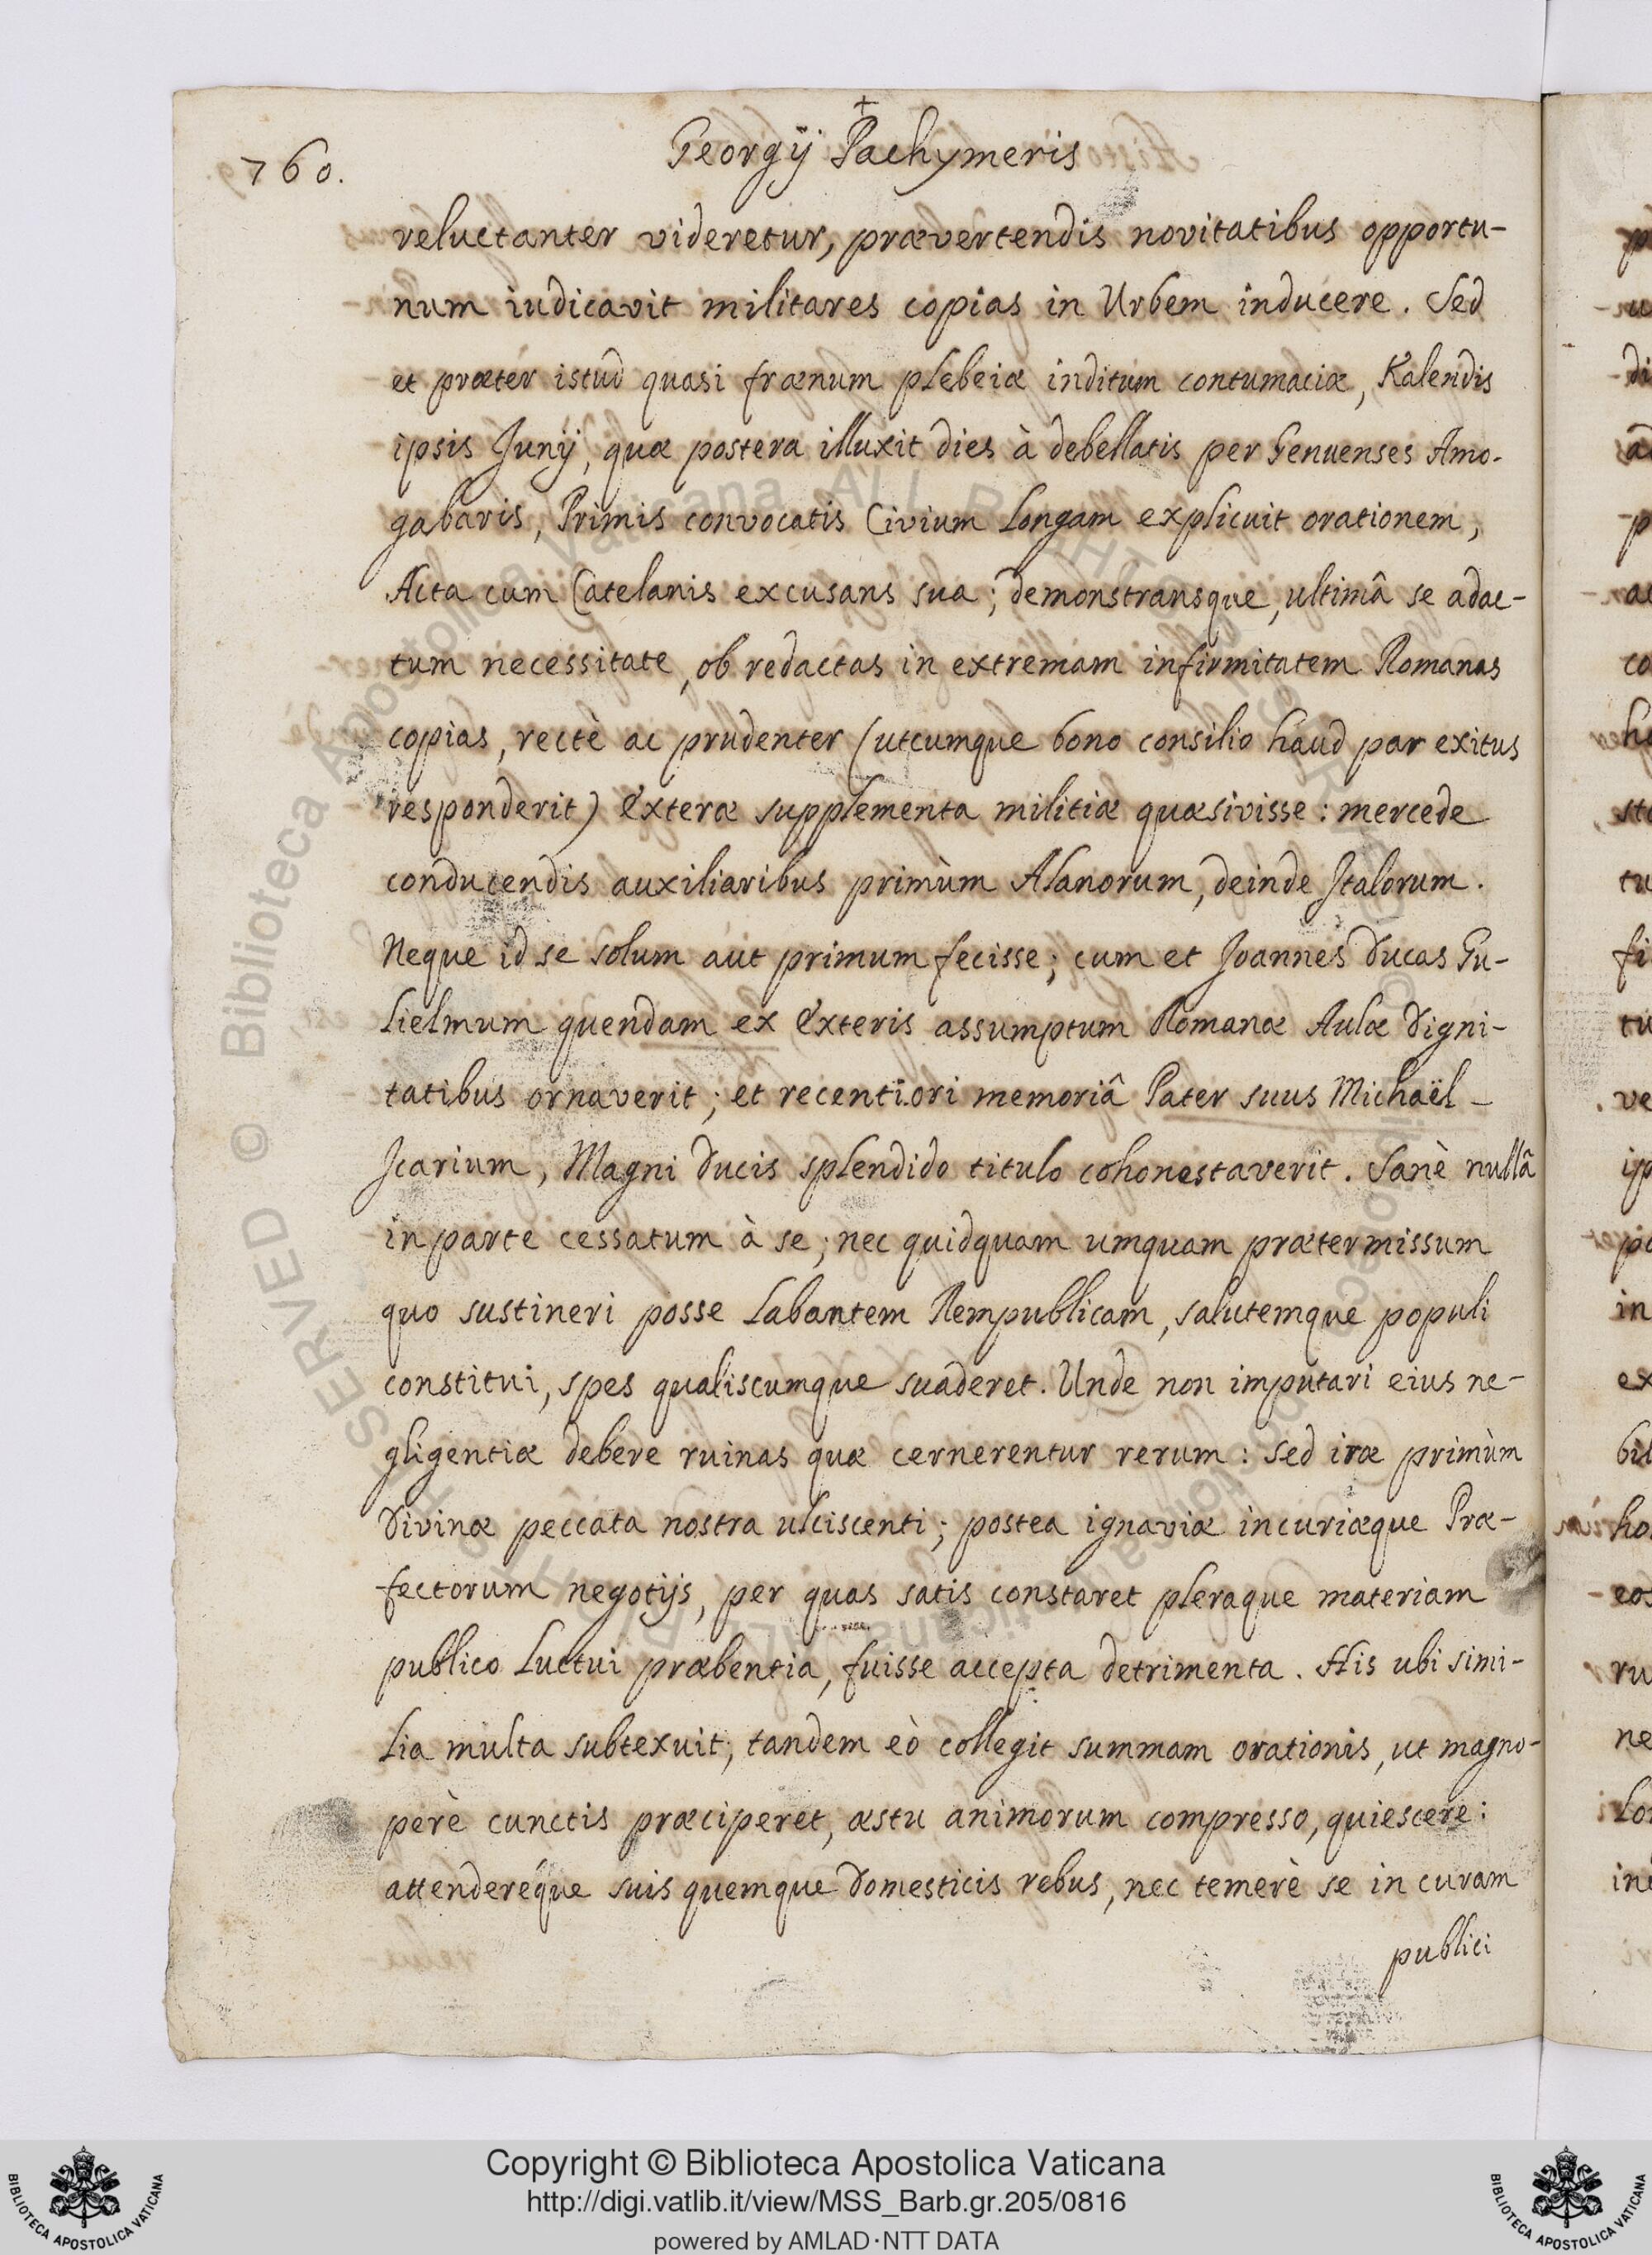 760.
Georgij Pachymeris
reluctanter videretur, prævertendis novitatibus opportu-
num iudicavit militares copias in Urbem inducere. Sed
et præter istud quasi frænum plebeiæ inditum contumaciæ, Kalendis
ipsis Junij, quæ postera illuxit dies à debellatis per Genuenses Amo-
gabaris, Primis convocatis Civium longam explicuit orationem,
Acta cum Catelanis excusans sua; demonstransque, ultimâ se adac-
tum necessitate, ob redactas in extremam infirmitatem Romanas
copias, rectè ac prudenter (utcumque bono consilio haud par exitus
responderit) Exteræ supplementa militiæ quæsivisse: mercede
conducendis auxiliaribus primùm Alanorum, deinde Italorum.
Neque id se solum aut primum fecisse; cum et Joannes Ducas Gu-
lielmum quendam ex Exteris assumptum Romanæ Aulæ Digni-
tatibus ornaverit; et recentiori memoriâ Pater suus Michaël
Icarium, Magni Ducis splendido titulo cohonestaverit. Sanè nullâ
in parte cessatum à se; nec quidquam umquam prætermissum
quo sustineri posse labantem Rempublicam, salutemque populi
constitui, spes qualiscumque suaderet. Unde non imputari eius ne-
gligentiæ debere ruinas quæ cernerentur rerum: sed iræ primùm
Divinæ peccata nostra ulciscenti; postea ignaviæ incuriæque Præ-
fectorum negotijs, per quas satis constaret pleraque materiam
publico luctui præbentia, fuisse accepta detrimenta. His ubi simi-
lia multa subtexuit, tandem eò collegit summam orationis, ut magno-
perè cunctis præciperet, æstu animorum compresso, quiescere:
attendereque suis quemque Domesticis rebus, nec temerè se in curam
publici
Copyright © Biblioteca Apostolica Vaticana
http://digi.vatlib.it/view/MSS_Barb.gr.205/0816
powered by AMLAD·NTT DATA
BIBLIOTECA APOSTOLICA VATICANA
BIBLIOTECA APOSTOLICA VATICANA